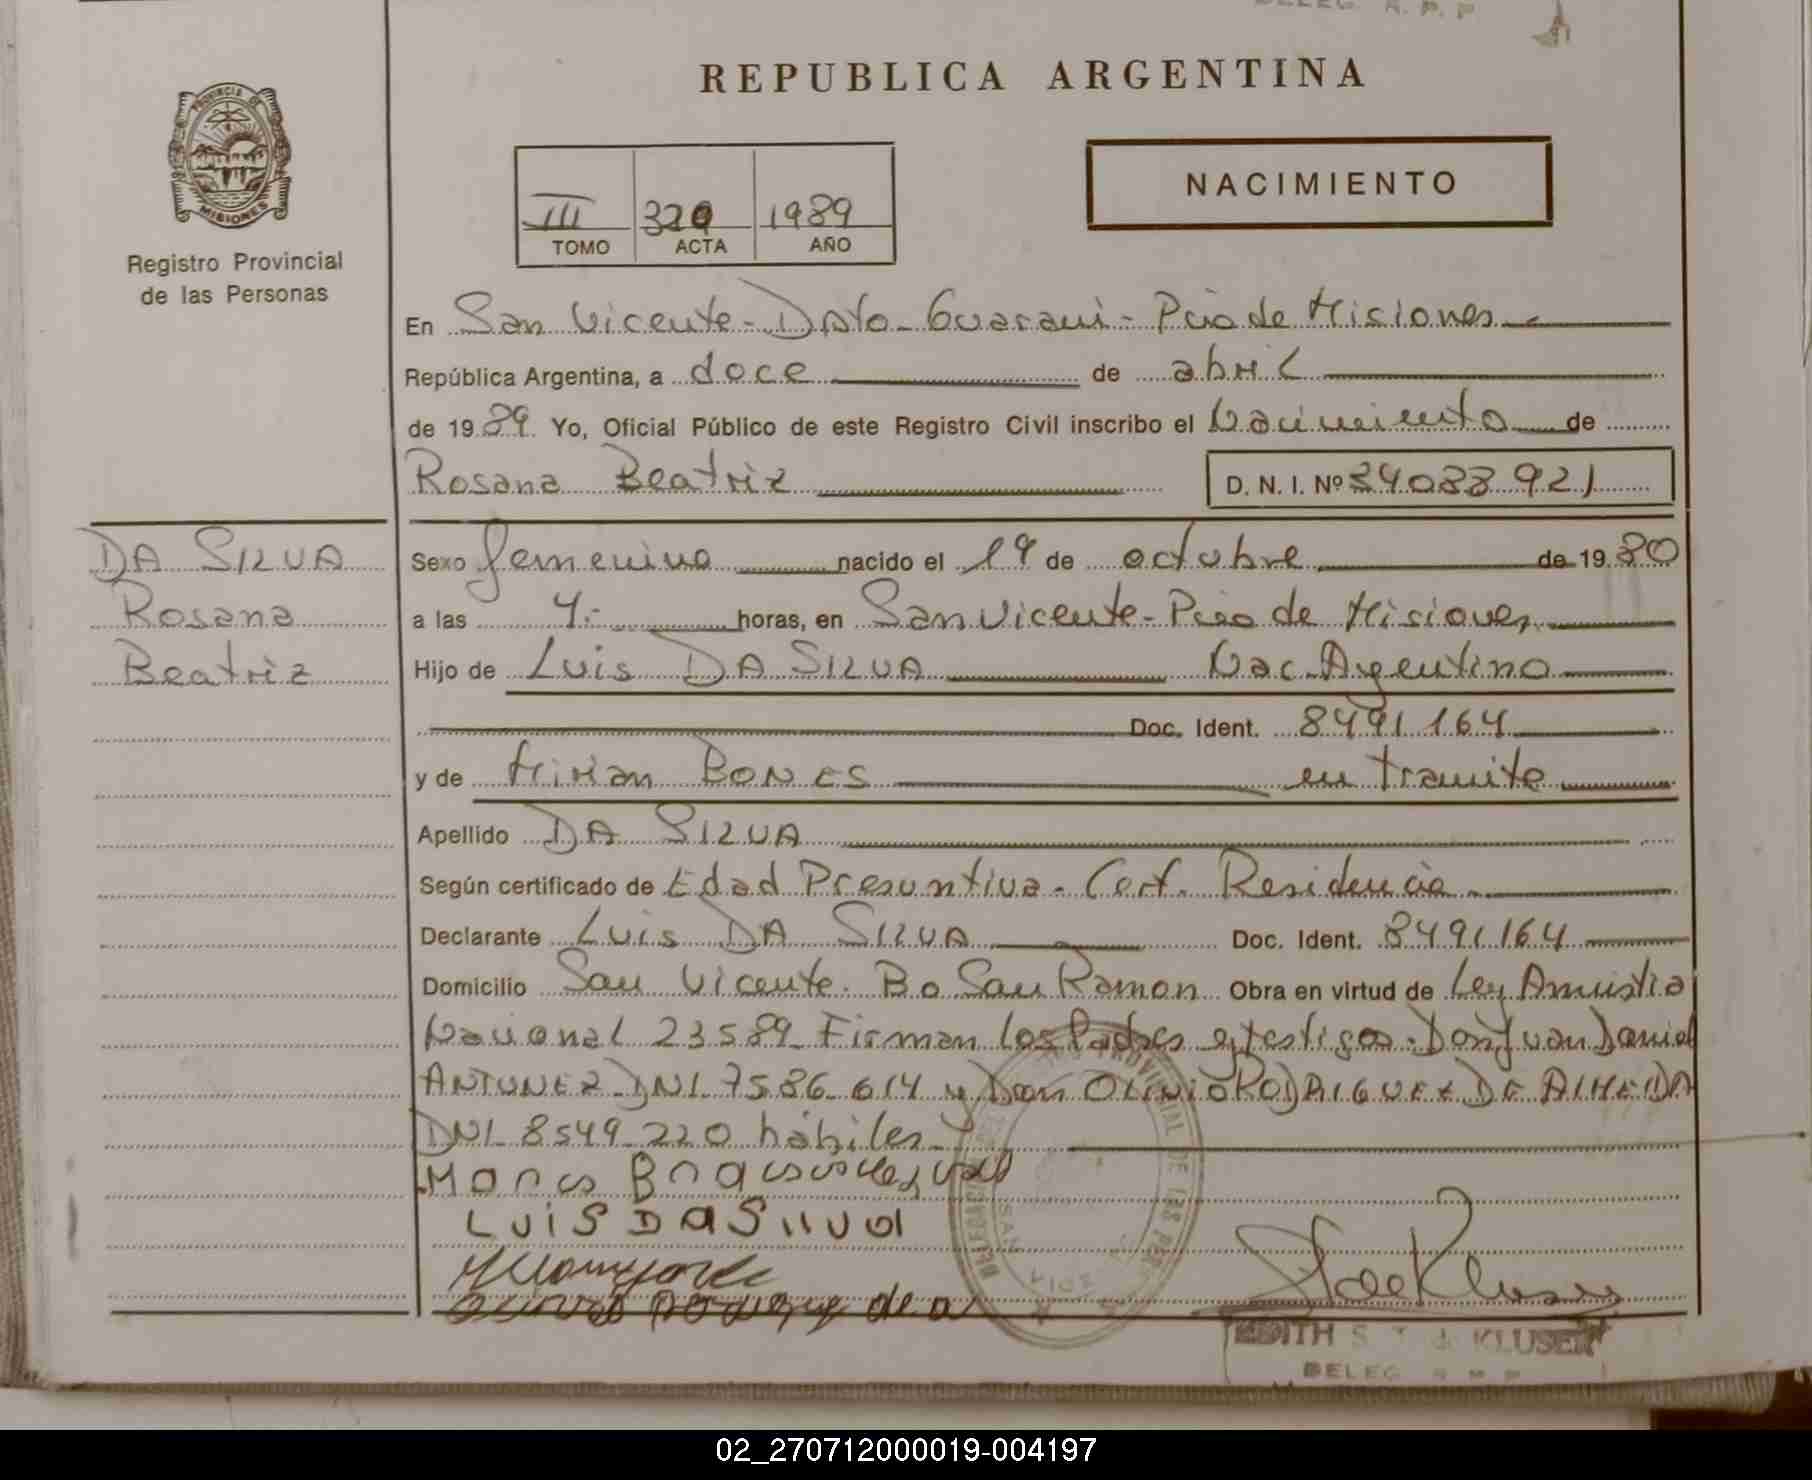 REPUBLICA ARGENTINA
PROVINCIA DE
MISIONES
Registro Provincial
de las Personas
III
1989
TOMO ACTA AÑO
NACIMIENTO
En San Vicente - Dpto - Guarani - Pcia de Misiones
República Argentina, a doce de abril
de 1989. Yo, Oficial Público de este Registro Civil inscribo el Nacimiento de
Rosana Beatriz D. N. I. Nº 34088921
DA SILVA
Rosana
Beatriz
Sexo femenino nacido el 19 de octubre de 1980
a las 4.- horas, en San Vicente - Pcia de Misiones
Hijo de Luis DA SILVA Nac. Argentino
Doc. Ident. 8491164
y de Mirian BONES en tramite
Apellido DA SILVA
Según certificado de Edad Presuntiva - Cert. Residencia
Declarante Luis DA SILVA Doc. Ident. 8491164
Domicilio San Vicente. Bo San Ramon Obra en virtud de Ley Amnistia
Nacional 23589 Firman los Padres y testigos. Don Juan Daniel
ANTUNEZ DNI. 7586.614 y Don OLINIO RODRIGUEZ DE ALMEIDA
DNI 8549.220 hábiles
LUIS DA SILVA
EDITH S. T. KLUSER
DELEG
02_270712000019-004197